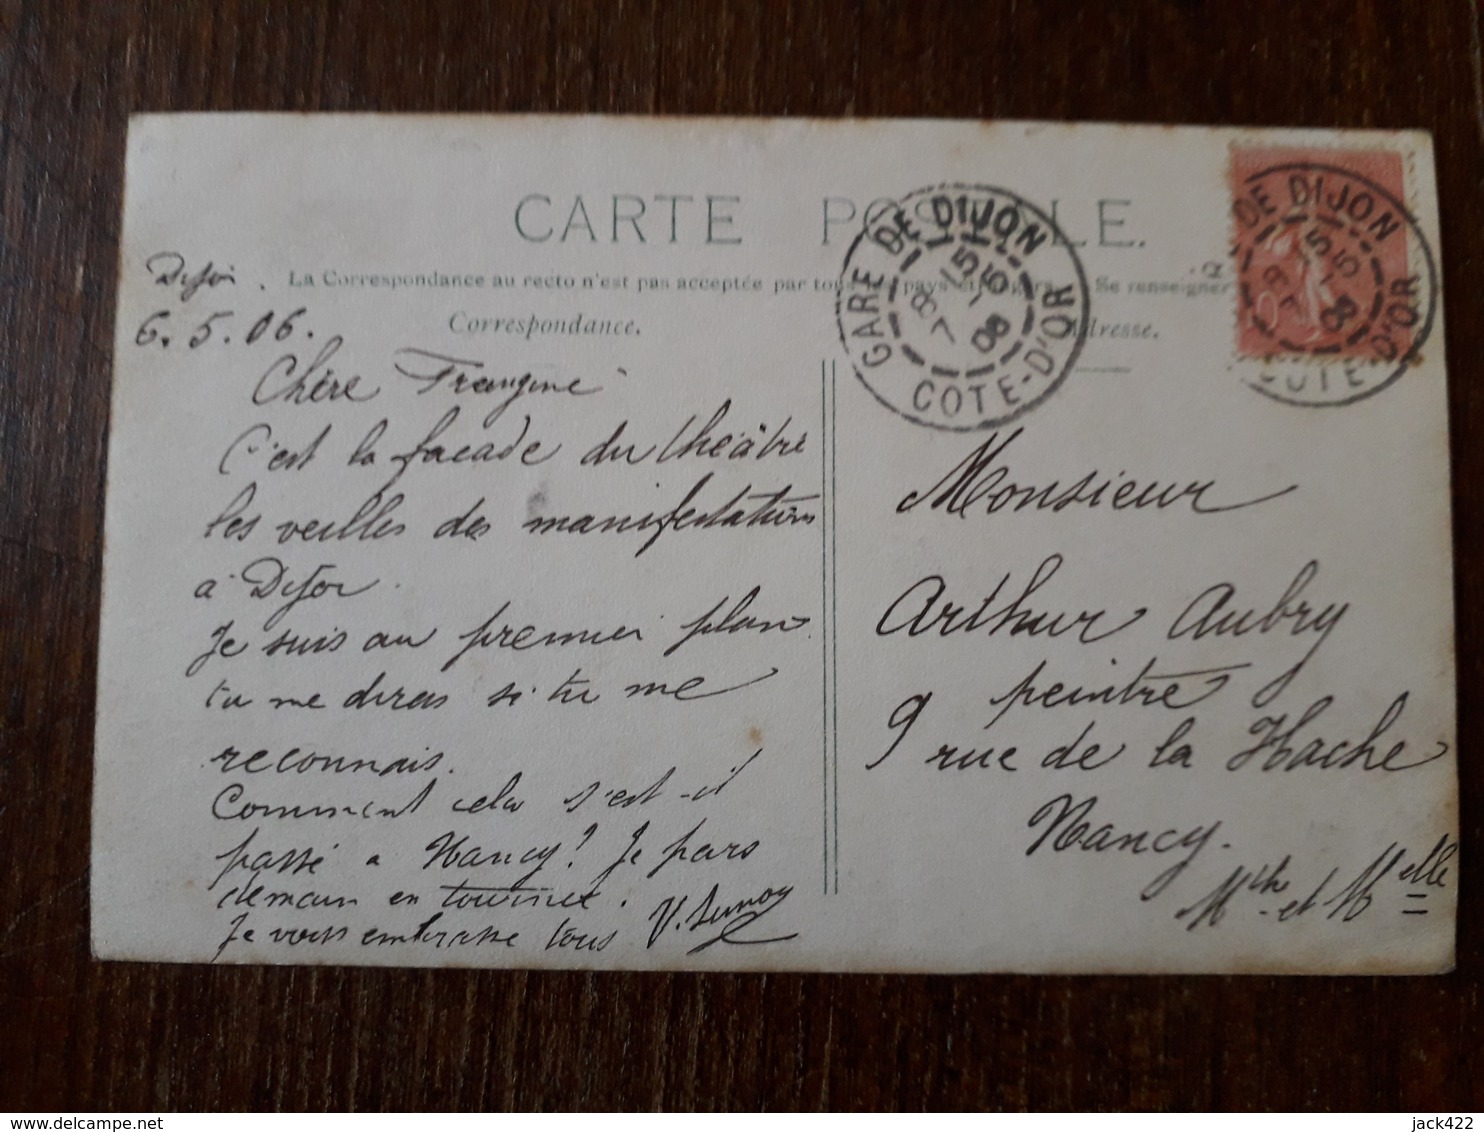 CARTE POSTALE.
La Correspondance au recto n'est pas acceptée par tous pays Se renseigner
Correspondance.
Adresse.
GARE DE DIJON
8 15
7 -5
06
COTE-D'OR
DE DIJON
8 15
7 -5
06
COTE-D'OR
Dijon
6.5.06.
Chère Frangine
C'est la façade du théâtre
les veilles des manifestations
à Dijon.
Je suis au premier plan
tu me diras si tu me
reconnais.
Comment cela s'est-il
passé a Nancy? Je pars
demain en tournée.
Je vous embrasse tous
Monsieur
Arthur Aubry
peintre
9 rue de la Hache
Nancy.
et Melle
delcampe.net
jack422